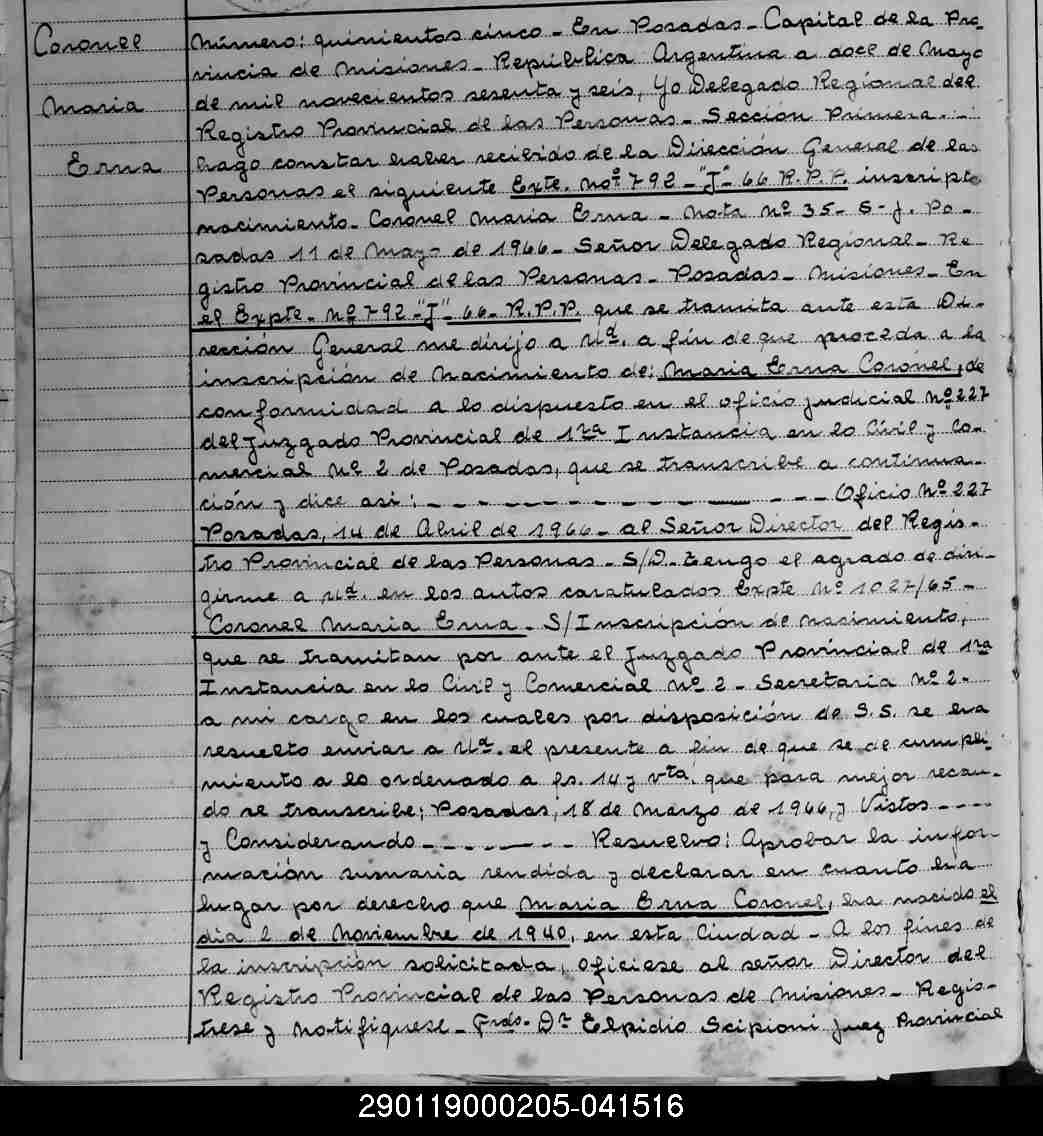 Coronel
Maria
Erna
Número: quinientos cinco - En Posadas - Capital de la Pro-
vincia de Misiones - República Argentina a doce de Mayo
de mil novecientos sesenta y seis, Yo Delegado Regional del
Registro Provincial de las Personas - Sección Primera. -
hago constar haber recibido de la Dirección General de las
Personas el siguiente Expte. nº 792 - "J" - 66 R.P.P. inscripto
nacimiento - Coronel Maria Erna - Nota Nº 35 - S - J. Po-
sadas 11 de Mayo de 1966 - Señor Delegado Regional - Re
gistro Provincial de las Personas - Posadas - Misiones - En
el Expte. Nº 792 - "J" - 66 - R.P.P. que se tramita ante esta Di-
rección General me dirijo a Ud. a fin de que proceda a la
inscripción de Nacimiento de: Maria Erna Coronel, de
conformidad a lo dispuesto en el oficio judicial Nº 227
del Juzgado Provincial de 1ra Instancia en lo Civil y Co-
mercial Nº 2 de Posadas, que se transcribe a continua-
ción y dice asi: - - - - - - - - - - - - Oficio Nº 227
Posadas, 14 de Abril de 1966 - al Señor Director del Regis-
tro Provincial de las Personas - S/D - Tengo el agrado de diri-
girme a Ud. en los autos caratulados Expte Nº 1027/65 -
Coronel Maria Erna - S/Inscripción de nacimiento,
que se tramitan por ante el Juzgado Provincial de 1ra
Instancia en lo Civil y Comercial Nº 2 - Secretaria Nº 2 -
a mi cargo en los cuales por disposición de S.S. se ha
resuelto enviar a Ud. el presente a fin de que se de cumpli
miento a lo ordenado a fs. 14 y vta. que para mejor recau-
do se transcribe; Posadas, 18 de Marzo de 1966, y Vistos - - - -
y Considerando - - - - - - - Resuelvo: Aprobar la infor-
mación sumaria rendida y declarar en cuanto ha
lugar por derecho que Maria Erna Coronel, ha nacido el
dia 2 de Noviembre de 1940, en esta Ciudad - A los fines de
la inscripción solicitada, oficiese al señor Director del
Registro Provincial de las Personas de Misiones - Regis-
trese y notifiquese - Frdo. Dr Elpidio Scipioni Juez Provincial
290119000205-041516